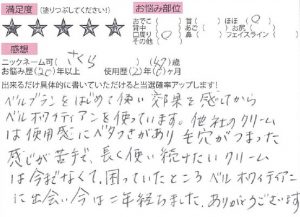 満足度 (塗りつぶしてください!) お悩み部位
おでこ 首( ) ほほ
背中 あご( )
口周り 鼻( ) フェイスライン
その他( )
感想
ニックネーム可( さくら ) ( 歳)
お悩み歴(20)年以上 使用歴(2)年( )ヶ月
出来るだけ具体的に書いていただけると当選確率アップします!
ベルブランをはじめて使い効果を感じてから
ベルホワイティアンを使っています。他社のクリーム
は使用感にベタつきがあり毛穴がつまった
感じが苦手で、長く使い続けたいクリーム
は今までなくて、困っていたところベルホワイティアン
に出会い今は二年経ちました。ありがとうございます